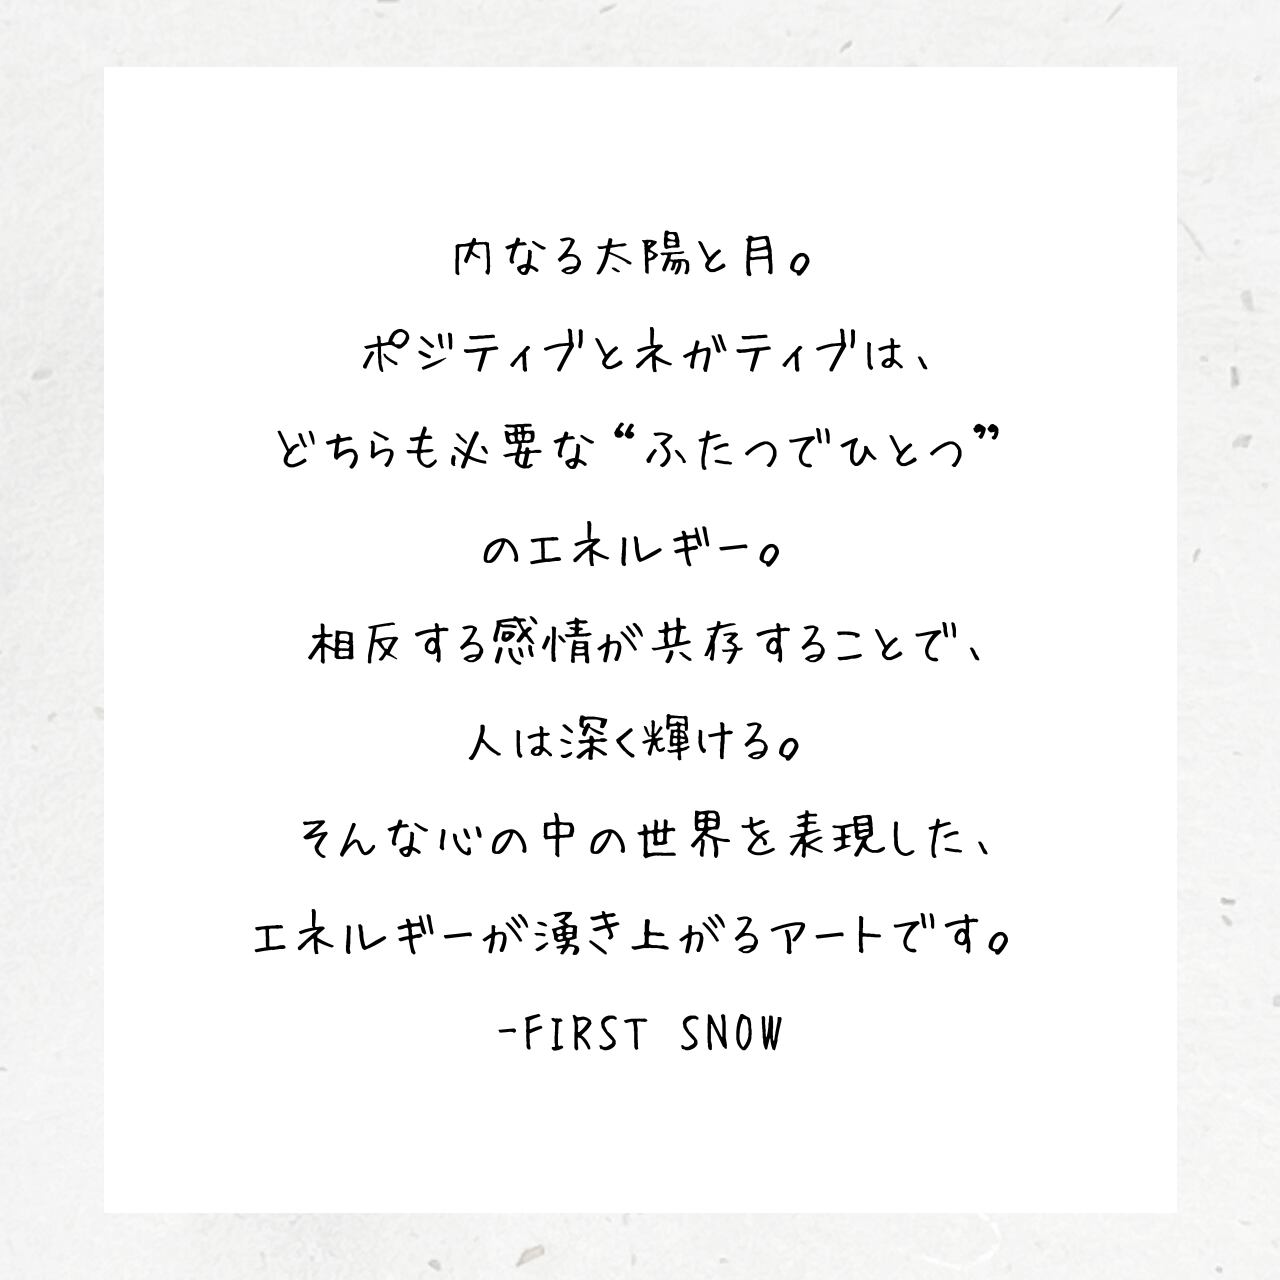 内なる太陽と月。
ポジティブとネガティブは、
どちらも必要な“ふたつでひとつ”
のエネルギー。
相反する感情が共存することで、
人は深く輝ける。
そんな心の中の世界を表現した、
エネルギーが湧き上がるアートです。
-FIRST SNOW